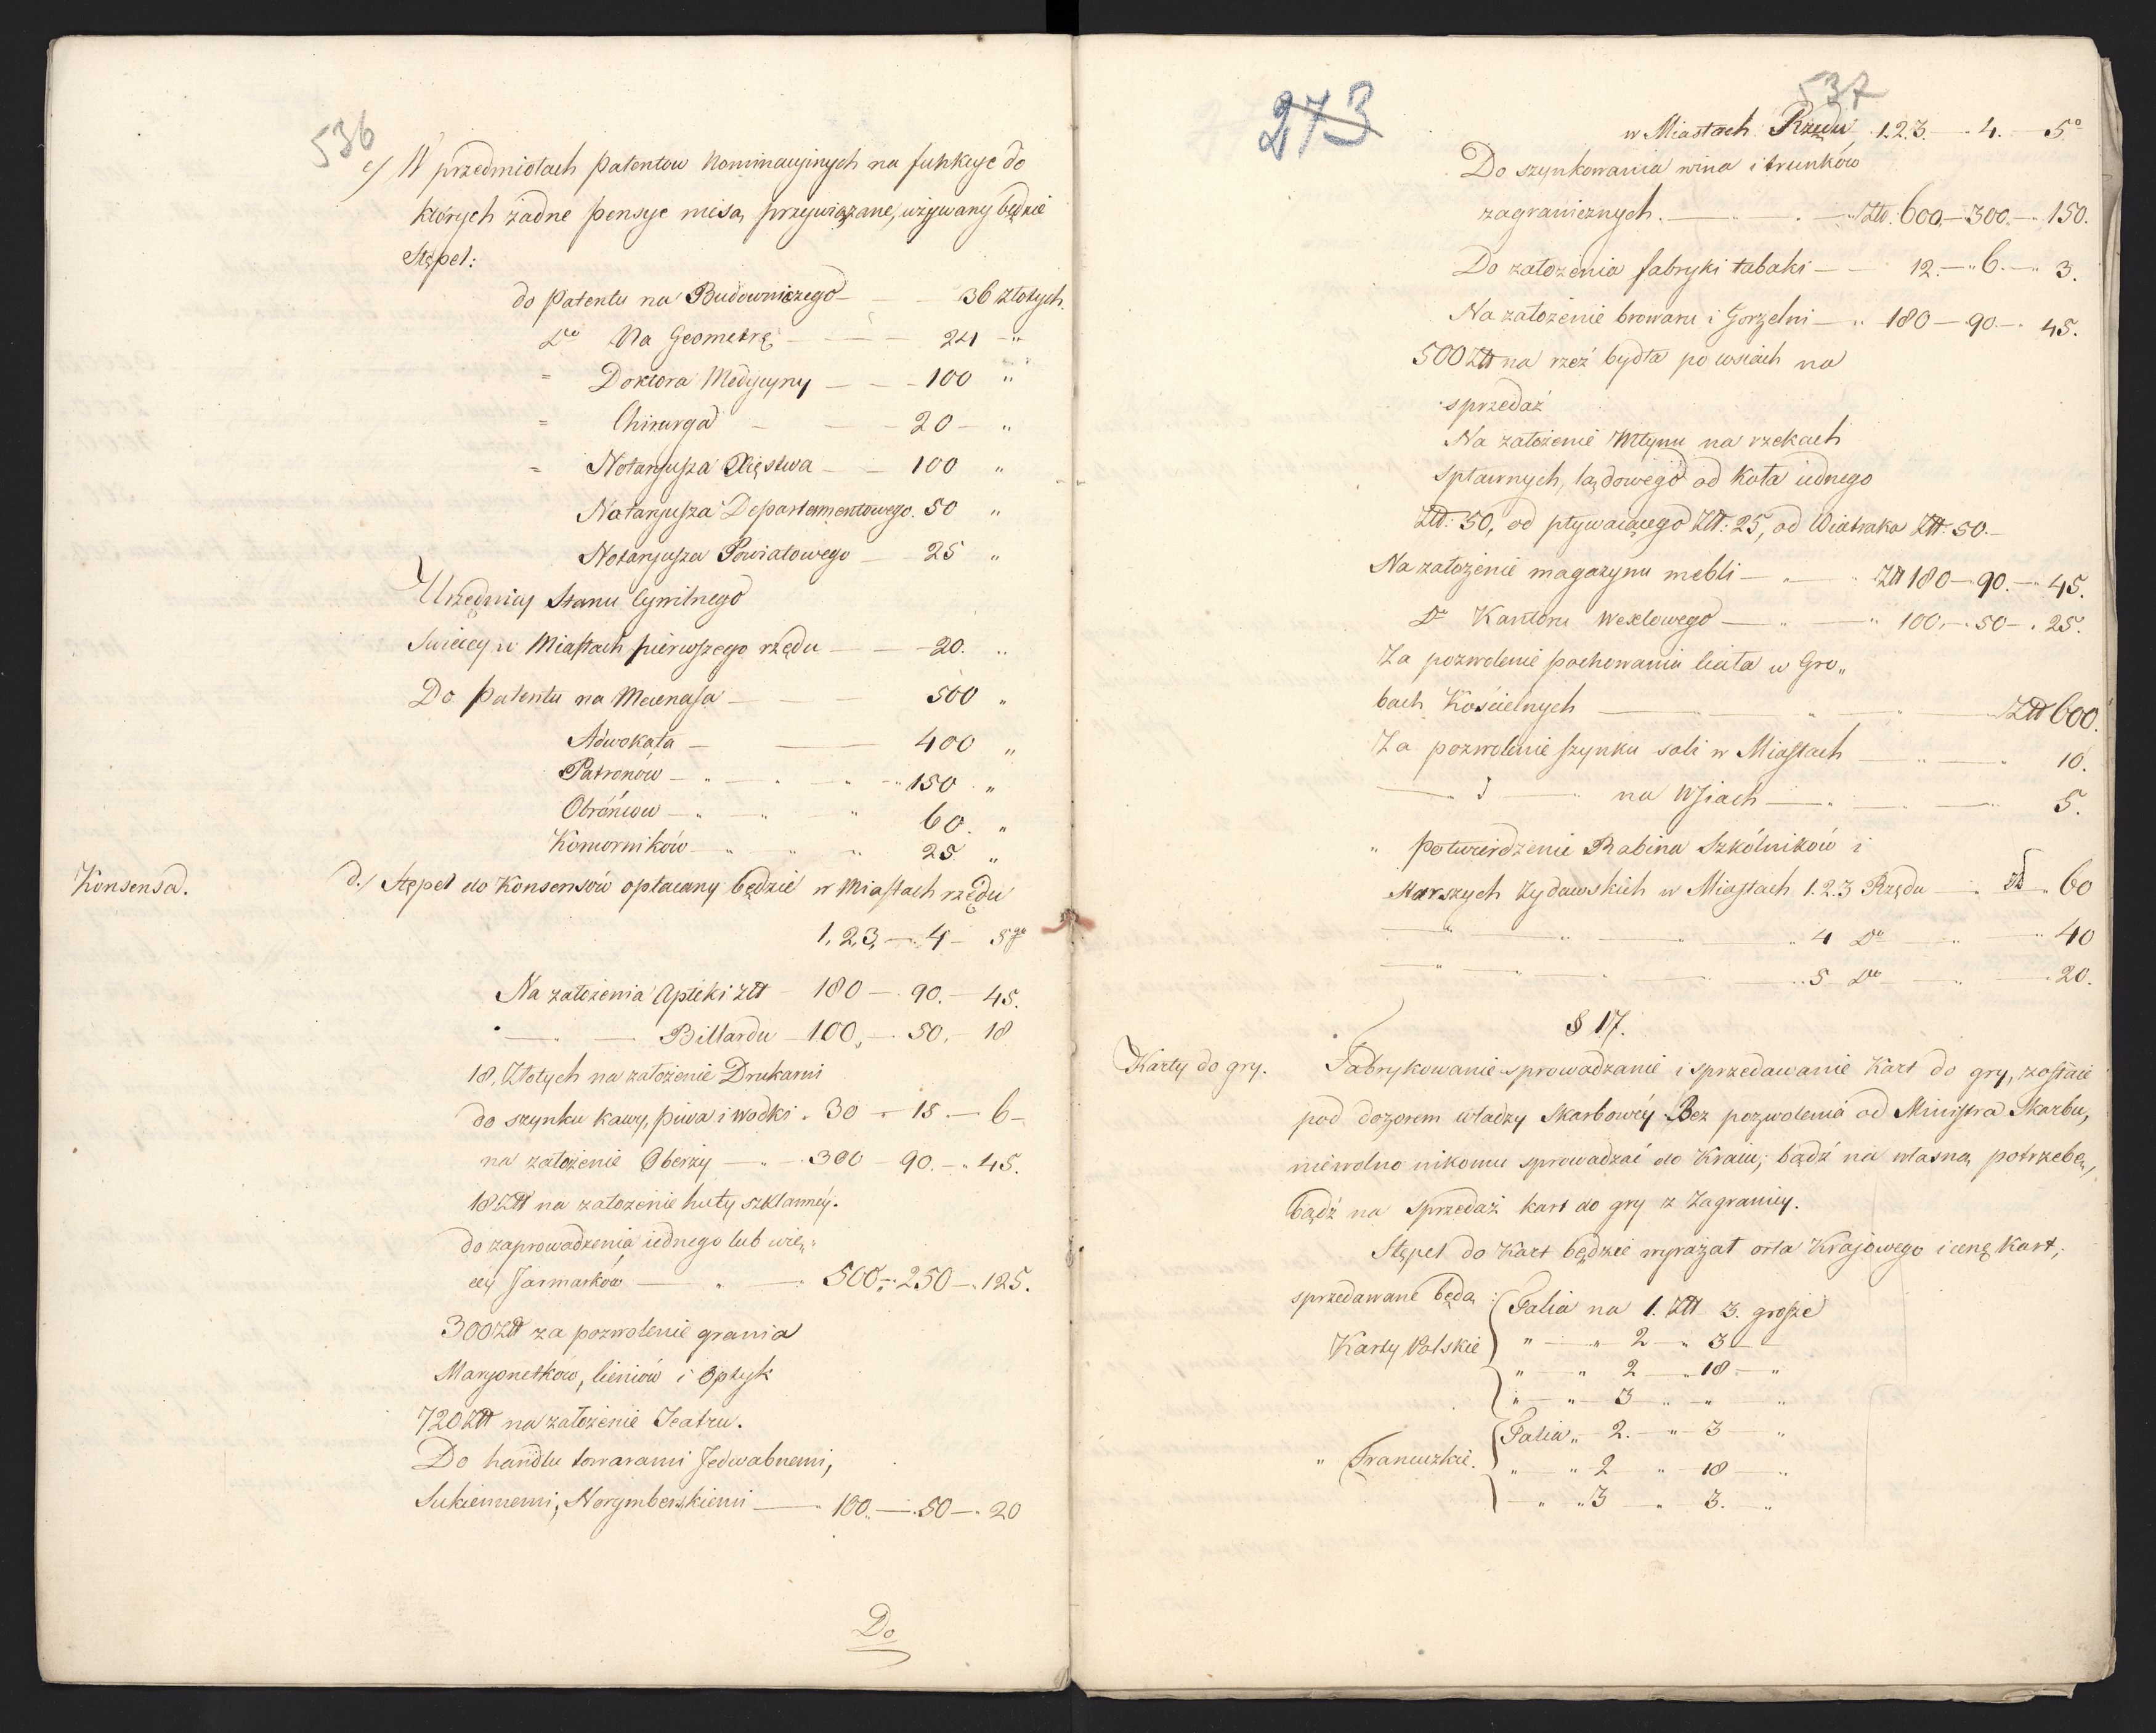 536
c/ W przedmiotach patentow Nominacyinych na funkcye do
których żadne pensye niesą przywiązane, używany będzie
Stępel:
do patentu na Budowniczego — — 36 złotych.
Do Na Geometrę — — — 24 — "
= Doktora Medycyny — — 100 "
= Chirurga — — — 20 — "
= Notaryusza Xięstwa — — 100 "
Notaryusza Departamentowego. 50 "
Notaryusza Powiatowego — 25 "
Urzędnicy Stanu Cywilnego
Swieccy w Miastach pierwszego rzędu — — 20. "
Do patentu na Mecenasa — — — 500 "
Adwokata — — — 400 "
Patronów — " — " — " — 150 "
Obrońców — " — " — " 60. "
Komorników — " — " — " 25 "
Konsensa.
d./ Stępel do Konsensów opłacany będzie w Miastach rzędu
1, 2, 3, — 4 — 5go
Na założenia Apteki złt — 180 — 90. — 45.
" — — Billardu — 100, — 50, — 18
18, Złotych na założenie Drukarni
do szynku kawy, piwa i wodki . 30 — 15 — 6 —
na założenie Oberży — " — 300 — 90. — " 45.
18 Złt na założenie huty szklannéy.
do zaprowadzenia iednego lub wię„
cey Jarmarków — " — 500 — " 250 — " 125.
300 złt za pozwolenie grania
Maryonetków, cieniów i Optyk
720 złt na założenie Teatru.
Do handlu towarami Jedwabnemi,
Sukiennemi, Norymberskiemi — " 100. — " 50 — " 20
Do
273
537
w Miastach Rzędu 1. 2. 3. — . 4. — 5o
Do szynkowania wina i trunków
zagranicznych. — " — . — Złt. 600. — 300. — " 150.
Do założenia fabryki tabaki — — 12. — " 6. — " 3.
Na założenie browaru i Gorzelni — " 180 — 90 — " 45.
500 Złt na rzeź bydła po wsiach na
sprzedaż
Na założenie Młynu na rzekach
spławnych, lądowego od koła iednego
Złt: 50, od pływaiącego Złt: 25, od Wiatraka Złt 50. —
Na założenie magazynu mebli — " — " Złt 180 — 90. — " 45.
Do Kantoru Wexlowego — " — " 100, — " 50 — " 25.
Za pozwolenie pochowania ciała w Gro„
bach Kościelnych — " — " — Złt 600.
Za pozwolenie szynku soli w Miastach — " — " 10.
— " — " na Wsiach — " — " 5.
" potwierdzenie Rabina Szkólników i
Starszych Żydowskich w Miastach 1. 2. 3 Rzędu — " Zł " 60
— " — " — " — " 4 Do — " — " 40
— " — " — " — " 5 Do — " — 20.
§ 17.
Karty do gry.
Fabrykowanie sprowadzanie i sprzedawanie Kart do gry, zostaie
pod dozorem władzy Skarbowéy Bez pozwolenia od Ministra Skarbu,
niewolno nikomu sprowadzać do Kraiu; bądź na własną potrzebę,
bądź na sprzedaż kart do gry z Zagranicy.
Stępel do Kart będzie wyrażał orła Krajowego i cenę kart;
sprzedawane będą :
Karty Polskie
Talia na 1. Złt 3. grosze
" — " 2 — " 3 —
" — " 2 — " 18 — "
" — " 3 — " " "
" Francuzkie.
Talia " 2. — " 3 — "
" — " 2 — " 18 — "
— " " 3 " 3. — "